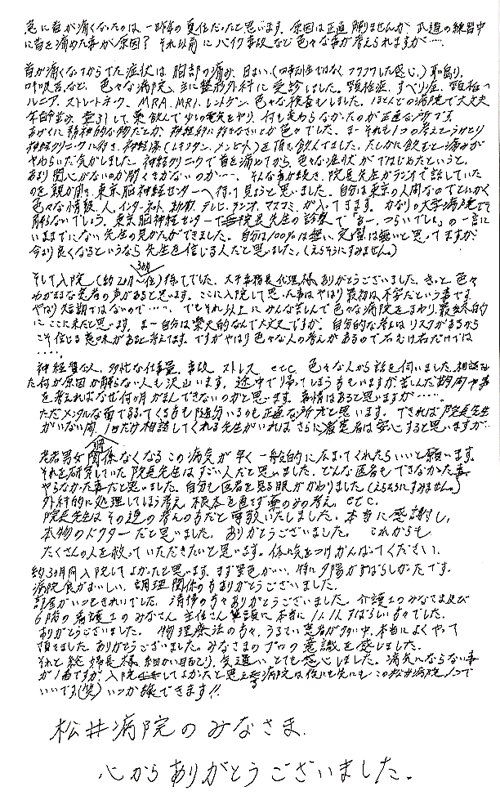 急に首が痛くなったのは一昨年の夏位だったと思います。原因は正直解りませんが、武道の練習中
に首を痛めた事が原因？それ以前にバイク事故など色々な事が考えられますが……
首が痛くなってからでた症状は胸部の痛み、目まい、(四季制ではなくフワフワした感じ)耳鳴り、
呼吸苦など、色々な病院、主に整形外科に受診しました。頸椎症、すべり症、頸椎ヘ
ルニア、ストレートネック、MRA、MRI、レントゲン、色々な検査もしました。ほとんどの病院で大丈夫
牽引して薬飲んで少しの電気をやり、何も変わらなかったのが正直な所です。
あげくに精神的な物だとか、神経科に行きなさいとか色々でした。まーそれも1つの考えというかとり
神経クリニックに行き、神経薬(レキソタン、メンビット)を頂き飲んでました。たしかに飲むと痛みが
やわらいだ気がしました。神経クリニックで首を痛めてから、色々な症状がではじめたというと、
あまり関心がないのか聞く気がないのか……。そんな事が続き、院長先生がラジオで話していた
のを親が聞き、東京脳神経センターへ行って見ようと思いました。自分は東京の人間なのでとにかく
色々な情報、人、インターネット、雑誌、テレビ、ラジオ、マスコミ、が入ってきます。かなりの大学病院でも
解らないでしょう。東京脳神経センターで院長先生の診察で「あー、つらいでしょ」の一言に
いままでにない先生の見かたができました。自分は100%は無い、完璧は無いと思ってますが、
今より良くなるというなら先生を信じる人だと思いました。(えらそうにすみません。)
そして入院(約2か月〜3か月位)待てでした。大平事務長代理様、ありがとうございました。きっと色々
わがままな患者の声があると思います。ここに入院して思った事はやはり最初は不安だという事です。
やはり短期ではないので……。でもそれ以上にみんな苦しんで色々な病院をまわり、最終的
にここに来たと思います。まー自分は楽天的なんで大丈夫ですが、自分的な考えはリスクがあるから
こそ信じる意味があると考えます。ですがやはり色々な人の考えがあるので右も左もだけでは
……。
神経質な人、多忙な仕事量、事故、ストレス etc. 色々な人から話を伺いました。相談をし
た何が原因か解らない人も沢山います。途中で帰ってしまう方もいますが苦しんだ期間や事
を考えればなぜ何か月がまんできないのかと思います。事情はあると思いますが……。
ただメンタルな面で弱ってくる方も何分いるのも正直な所だと思います。できれば院長先生
がいない間、1日だけ相談してくれる先生がいれば、さらに患者は安心すると思いますが…
老若男女関係なくなるこの病気が早く一般的に広まってくれたらいいと願います。
それを研究していた院長先生はすごい人だと思いました。どんな医者もできなかった事、
やらなかった事だと思いました。自分も医者を見る眼がかわりました(えらそうにすみません。)
外科的に処理してしまう考え、根本を直す薬のみの考え、etc.
院長先生はその逆の考えの方だと尊敬いたしました。本当に感謝し、
本物のドクターだと思いました。ありがとうございました。これからも
たくさんの人を救っていただきたいと思います。体に気をつけがんばってください。
約3か月間入院してよかったと思います。まず景色がいい、特に夕陽がすばらしかったです。
病院食がおいしい、調理関係の方ありがとうございました。
部屋がいつもきれいでした、清掃の方々ありがとうございました。介護士のみなさま及び
6階の看護士のみなさん、主任さん、本当に1人1人すばらしい方々でした。
ありがとうございました。物理療法の方々、うるさい患者が多い中、本当によくやって
頂きました。ありがとうございました。みなさまのプロの意識を感じました。
それと総婦長様、細かい目くばり、気遣い、とても感心しました。病気にならない事
が1番ですが、入院してよかったと思える病院は後にも先にもこの松井病院1つで
いいです(笑)いつか旅できます!!
松井病院のみなさま、
心からありがとうございました。